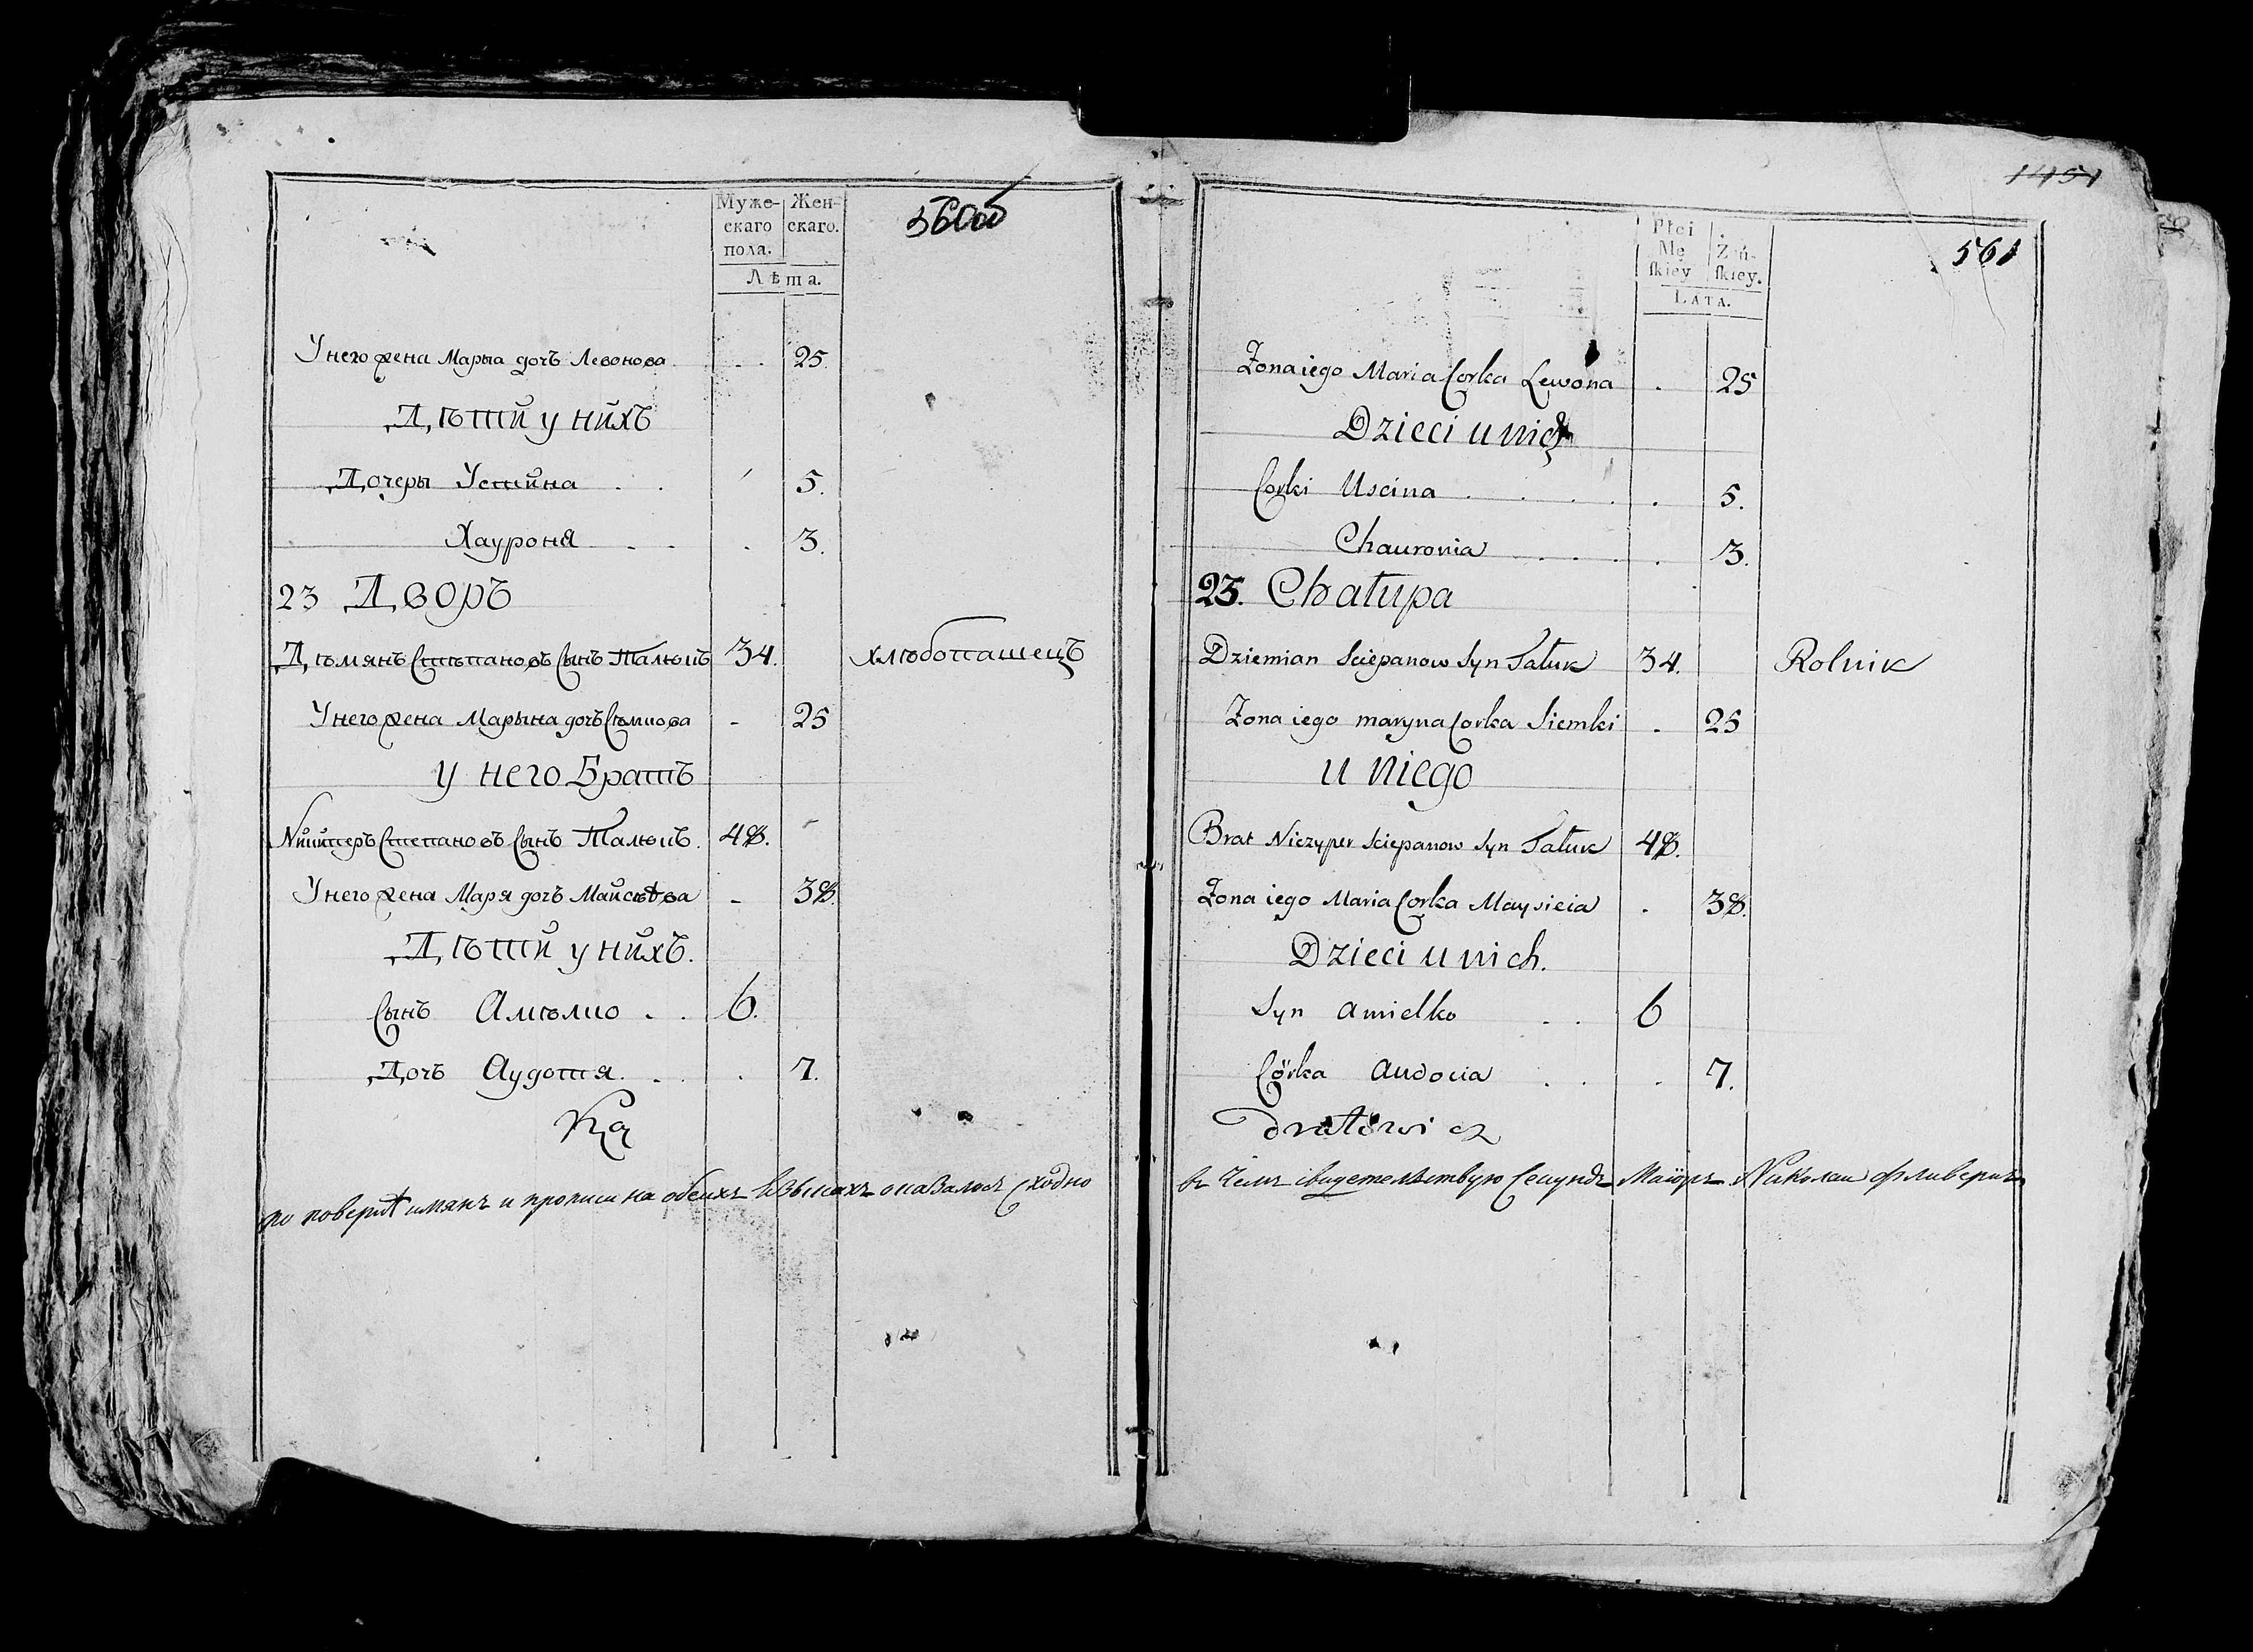 Муже-
скаго
пола.
Жен-
скаго.
Лѣта.
560об
У него жена Марыа дочъ Левонова . . 25.
Дѣтй у нйхъ
Дочеры Устйна . . 5.
Хауроня . . . 3.
23 Дворъ
Дѣмянъ Стѣпановъ Сынъ Талюкъ 34. хлѣбопашецъ
У него жена Марына дочъ Сѣмкова - 25
у него Братъ
Нйчйперъ Степановъ Сынъ Талюкъ. 48.
У него жена Маря дочъ Майсѣева - 38.
Дѣтй у нйхъ.
Сынъ Амѣлко . . 6.
Дочъ Аудотя . . . 7.
по поверке имянъ и прописи на обеихъ языкахъ оказалось сходно
1451
561
Płci
Mę
ſkiey
Żeń-
ſkiey.
LATA.
Zona iego Maria Corka Lewona . 25
Dzieci u nich
Corki Uscina . . . . . 5.
Chauronia . . . . 3.
23. Chałupa
Dziemian Sciepanow Syn Taluk 34. Rolnik
Zona iego maryna Corka Siemki . 25
u niego
Brat Niczyper Sciepanow Syn Taluk 48.
Zona iego Maria Corka Maysieia . 38.
Dzieci u nich.
Syn Amielko . . 6
Córka Audocia . . . 7.
в чемъ свидетельствую Секундъ Маіоръ Николаи